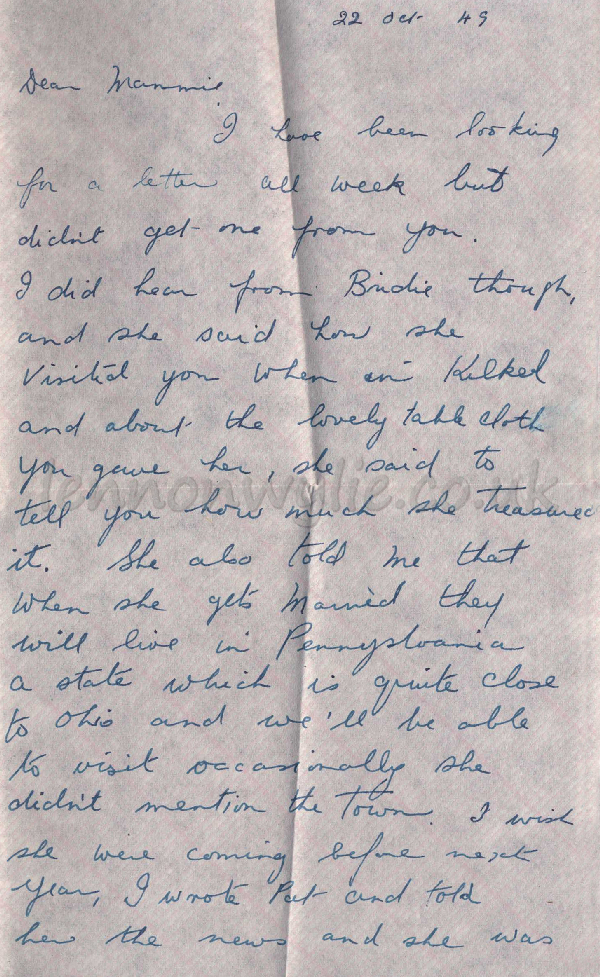 22 Oct 49
Dear Mammie
I have been looking
for a letter all week but
didn't get one from you.
I did hear from Birdie though,
and she said how she
visited you when in Kilkeel
and about the lovely table cloth
you gave her, she said to
tell you how much she treasured
it. She also told me that
when she gets married they
will live in Pennyslvania
a state which is quite close
to Ohio and we'll be able
to visit occasionally she
didn't mention the town. I wish
she were coming before next
year, I wrote Pat and told
her the news and she was
lennonwylie.co.uk